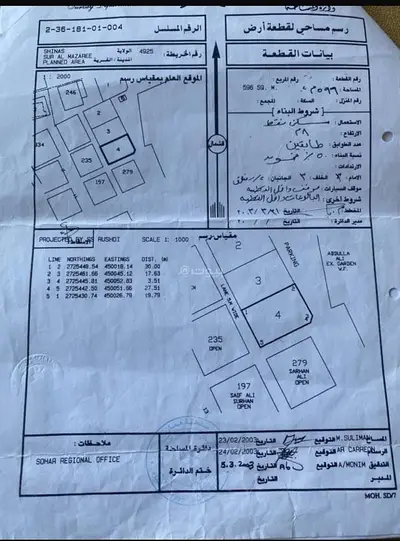 رسم مساحي لقطعة أرض
الرقم المسلسل
2-36-181-01-004
بيانات القطعة
رقم الخريطة: 4925 الولاية SHINAS
SUR AL MAZAREE
PLANNED AREA
رقم القطعة :
المربع
المساحة : ٥٩٦ م٢ 596 SQ. M.
رقم المنزل السكة المجمع :
شروط البناء
الاستعمال :
الارتفاع :
عدد الطوابق : طابقين
نسبة البناء :
الامام : ٣ الخلف : ٣ الجانبان :
موقف السيارات :
شروط اخرى :
التاريخ
مدير الدائرة : التاريخ
الموقع العام بمقياس رسم
1 : 2000
246
2
3
4
235
197
279
الشمال
PROJECTED BY RUSHDI SCALE 1: 1000 مقياس رسم
LINE NORTHINGS EASTINGS DIST. (m)
1 2 2725448.54 450018.14 30.00
2 3 2725461.66 450045.12 17.63
3 4 2725445.81 450052.83 3.51
4 5 2725442.50 450051.66 27.51
5 1 2725430.74 450026.79 19.79
2
PARKING
3
4
LANE 5M WIDE
ABDULLA
ALI
EX. GARDEN
W.F.
235
OPEN
279
SARHAN
ALI
OPEN
197
SAIF ALI
SURHAN
OPEN
13
ملاحظات :
SOHAR REGIONAL OFFICE
دائرة المساحة
ختم الدائرة
المساح M.SULIMAN التوقيع التاريخ 23/02/2003
الرسام AR CARREON التوقيع التاريخ 24/02/2003
التدقيق A/MONIM التوقيع التاريخ 5.3.2003
المدير التوقيع التاريخ
MOH. SD/7